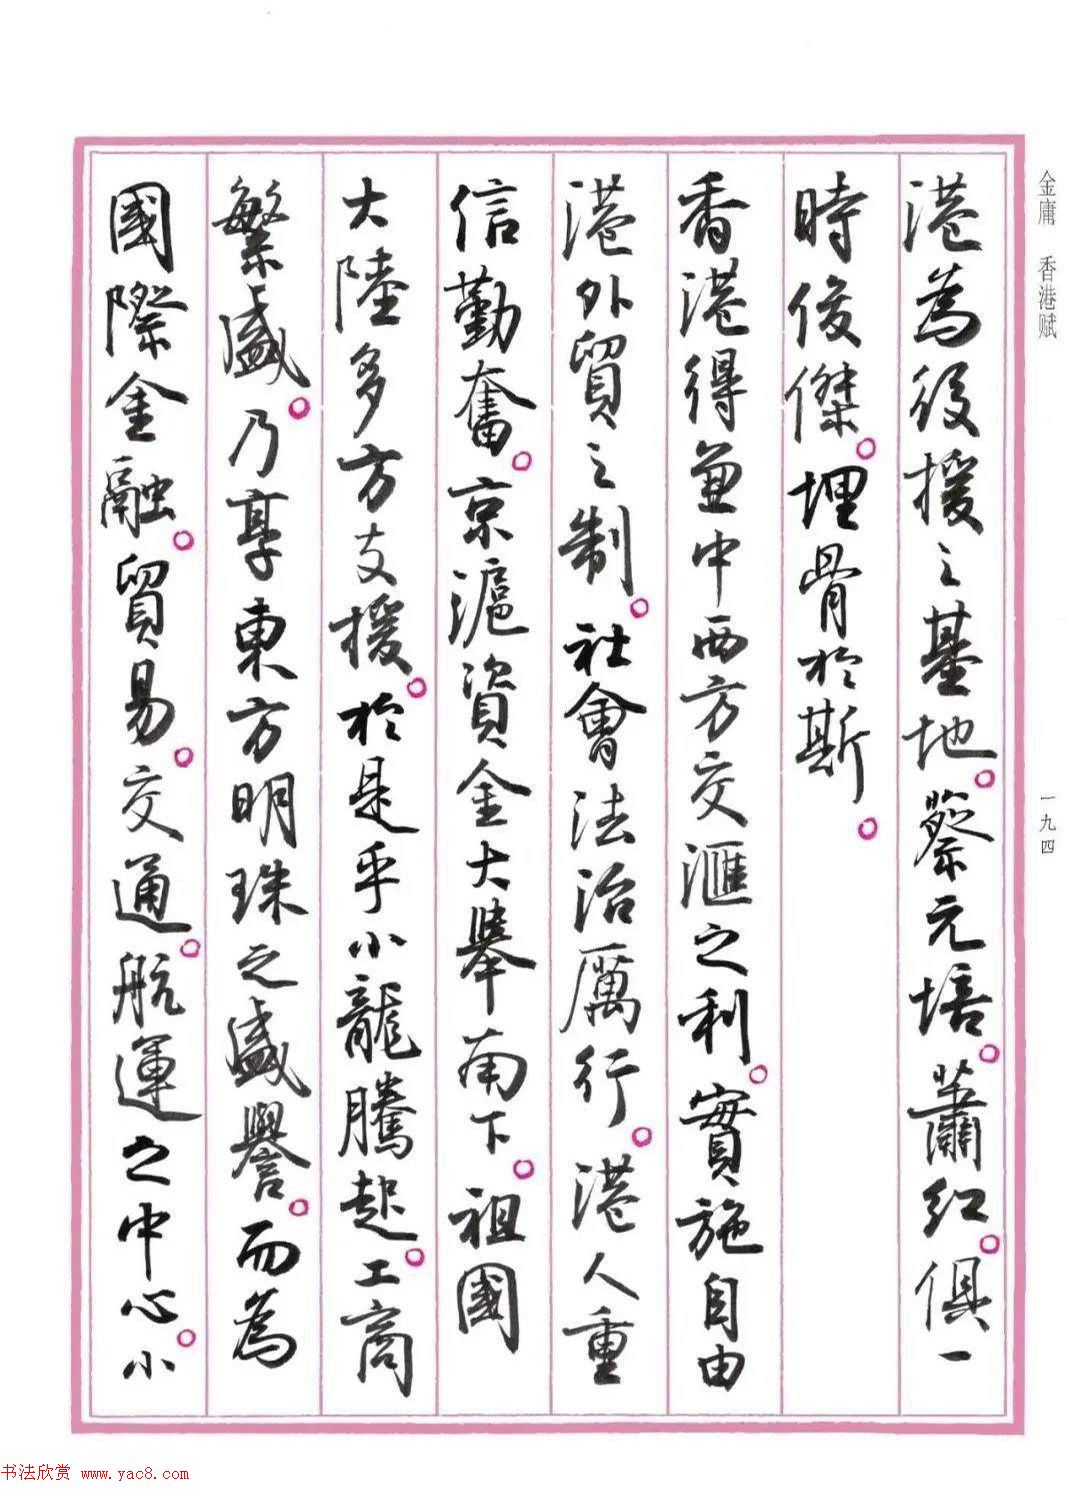 金庸 香港赋
一九四
港為後援之基地。蔡元培。蕭紅。俱一
時俊傑。埋骨於斯。
香港得兼中西方交滙之利。實施自由
港外貿之制。社會法治厲行。港人重
信勤奮。京滬資金大舉南下。祖國
大陸多方支援。於是乎小龍騰起。工商
繁盛。乃享東方明珠之盛譽。而為
國際金融。貿易。交通。航運之中心。小
书法欣赏 www.yac8.com